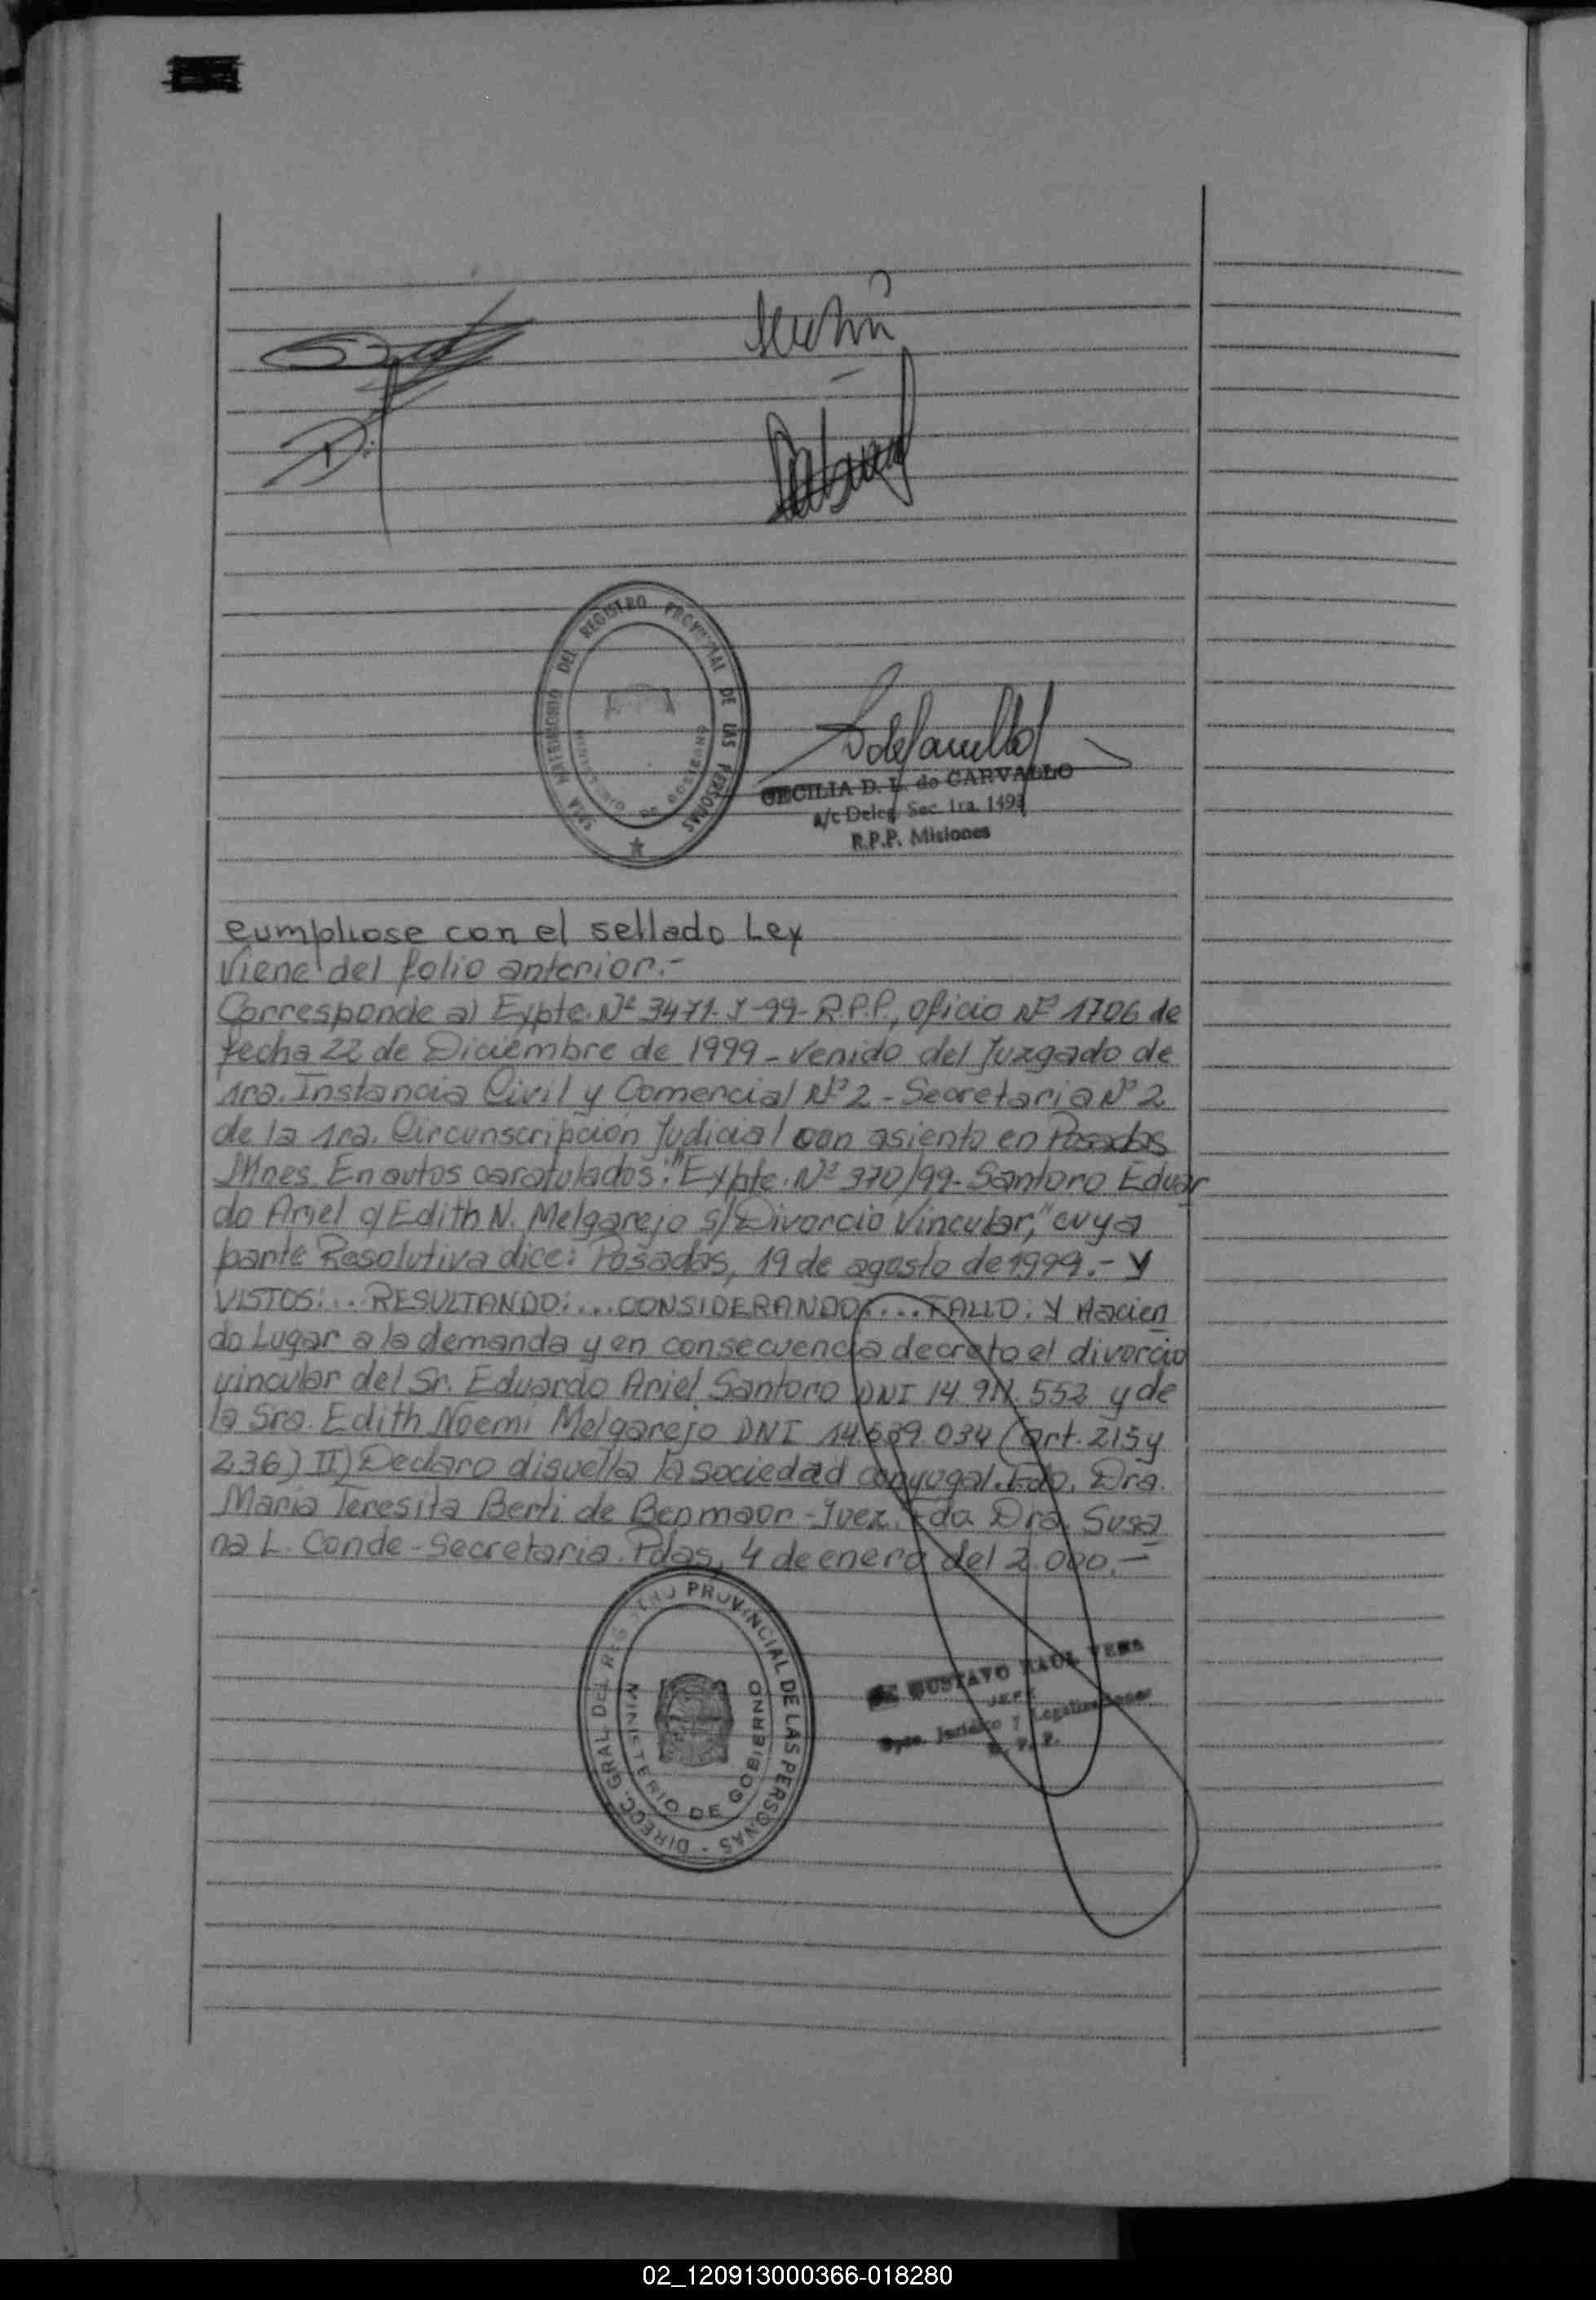 SRIA MATRIMONIO DEL REGISTRO PROVINCIAL DE LAS PERSONAS
MINISTERIO DE GOBIERNO
CECILIA D. L. de CARVALLO
a/c Deleg. Sec. 1ra. 1493
R.P.P. Misiones
Cumpliose con el sellado Ley
Viene del folio anterior.-
Corresponde al Expte. Nº 3471-J-99-R.P.P., Oficio Nº 1706 de
fecha 22 de Diciembre de 1999 - venido del Juzgado de
1ra. Instancia Civil y Comercial Nº 2 - Secretaria Nº 2
de la 1ra. Circunscripción Judicial con asiento en Posadas
Mnes. En autos caratulados: "Expte. Nº 370/99- Santoro Eduar
do Ariel c/ Edith N. Melgarejo s/ Divorcio Vincular," cuya
parte Resolutiva dice: Posadas, 19 de agosto de 1999.- Y
VISTOS:... RESULTANDO:... CONSIDERANDO:... FALLO: Y Hacien
do Lugar a la demanda y en consecuencia decreto el divorcio
vincular del Sr. Eduardo Ariel Santoro DNI 14.911.552 y de
la Sra. Edith Noemi Melgarejo DNI 14.639.034 (art. 215 y
236) II) Declaro disuelta la sociedad conyugal. Fdo. Dra.
Maria Teresita Berti de Benmaor - Juez. Fdo. Dra. Susa
na L. Conde - Secretaria. Pdas, 4 de enero del 2.000.-
DIRECC. GRAL. DEL REGISTRO PROVINCIAL DE LAS PERSONAS -
MINISTERIO DE GOBIERNO
GUSTAVO RAUL VERA
JEFE
Dpto. Jurídico y Legalizaciones
R. P. P.
02_120913000366-018280